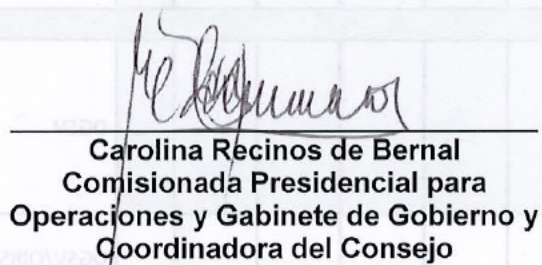 Carolina Recinos de Bernal
Comisionada Presidencial para
Operaciones y Gabinete de Gobierno y
Coordinadora del Consejo